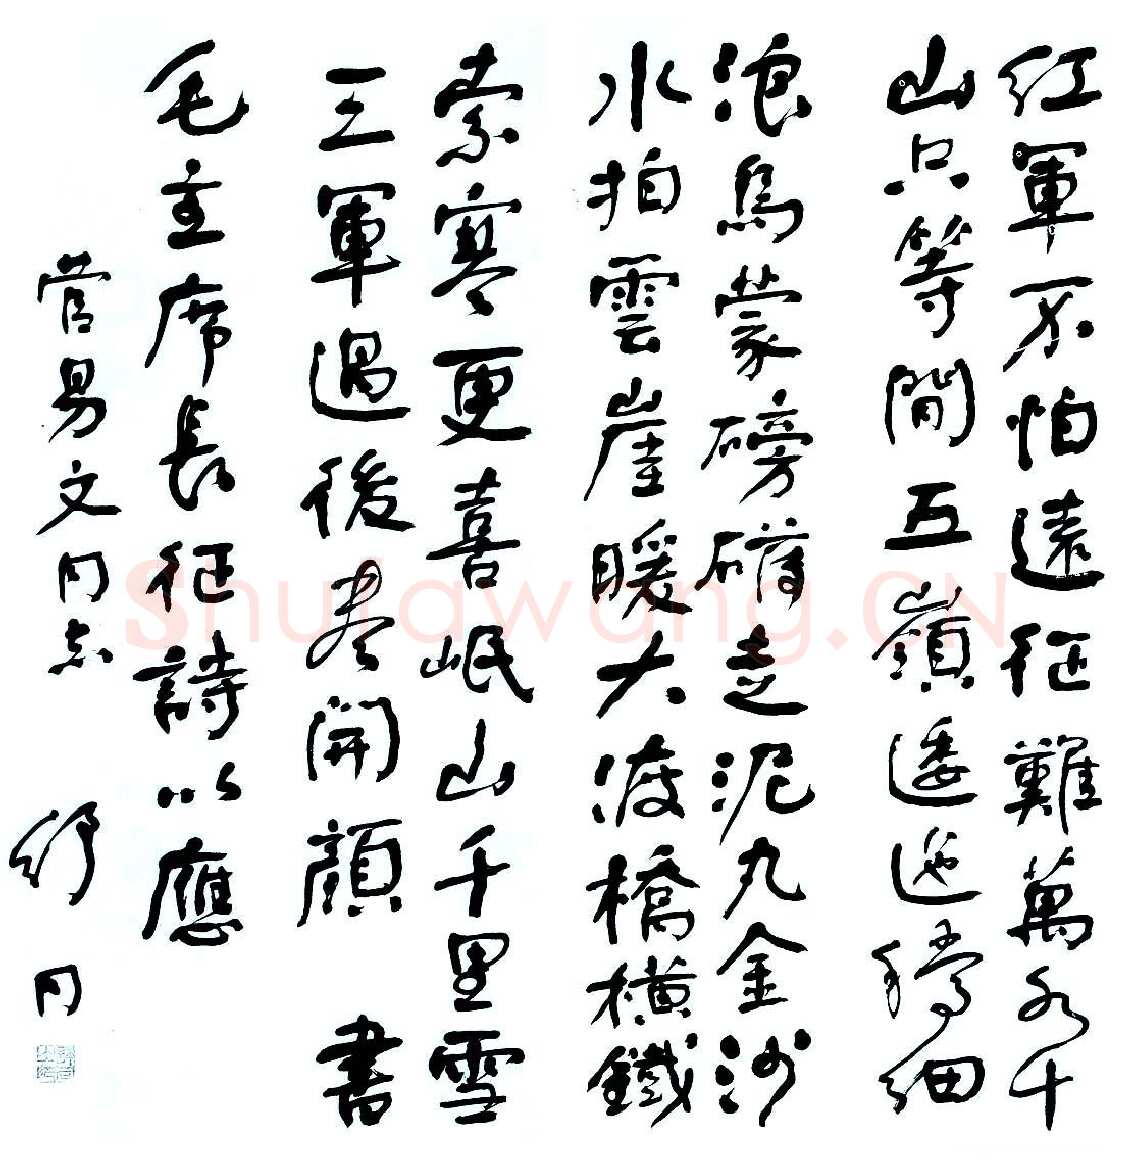 紅軍不怕遠征難萬水千
山只等間五嶺逶迤騰細
浪烏蒙磅礴走泥丸金沙
水拍雲崖暖大渡橋橫鐵
索寒更喜岷山千里雪
三軍過後盡開顏 書
毛主席長征詩以應
管易文同志 舒同
Shufawang.CN